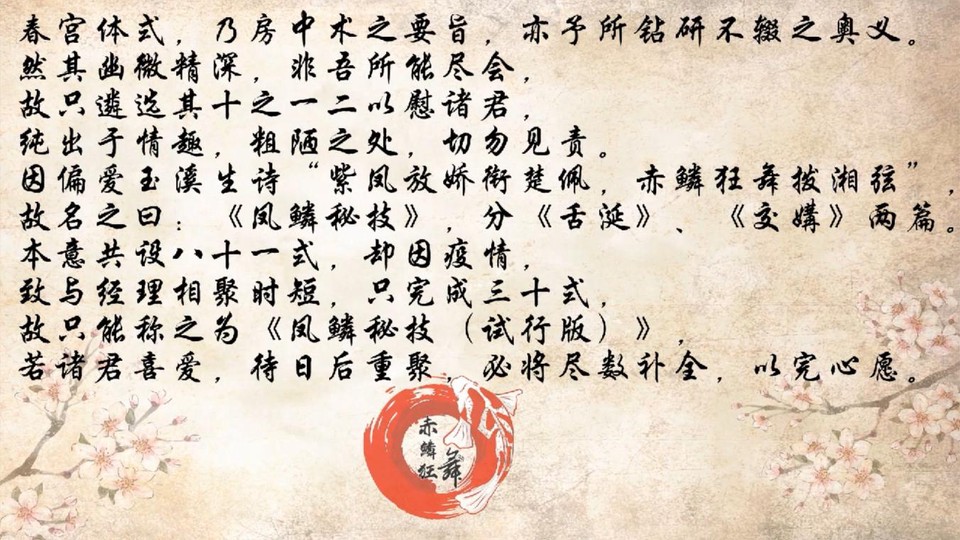 春宫体式，乃房中术之要旨，亦予所钻研不辍之奥义。
然其幽微精深，非吾所能尽会，
故只遴选其十之一二以慰诸君，
纯出于情趣，粗陋之处，切勿见责。
因偏爱玉溪生诗“紫凤放娇衔楚佩，赤鳞狂舞拨湘弦”，
故名之曰：《凤鳞秘技》，分《舌涎》、《交媾》两篇。
本意共设八十一式，却因疫情，
致与经理相聚时短，只完成三十式，
故只能称之为《凤鳞秘技（试行版）》，
若诸君喜爱，待日后重聚，必将尽数补全，以完心愿。
赤鳞狂舞